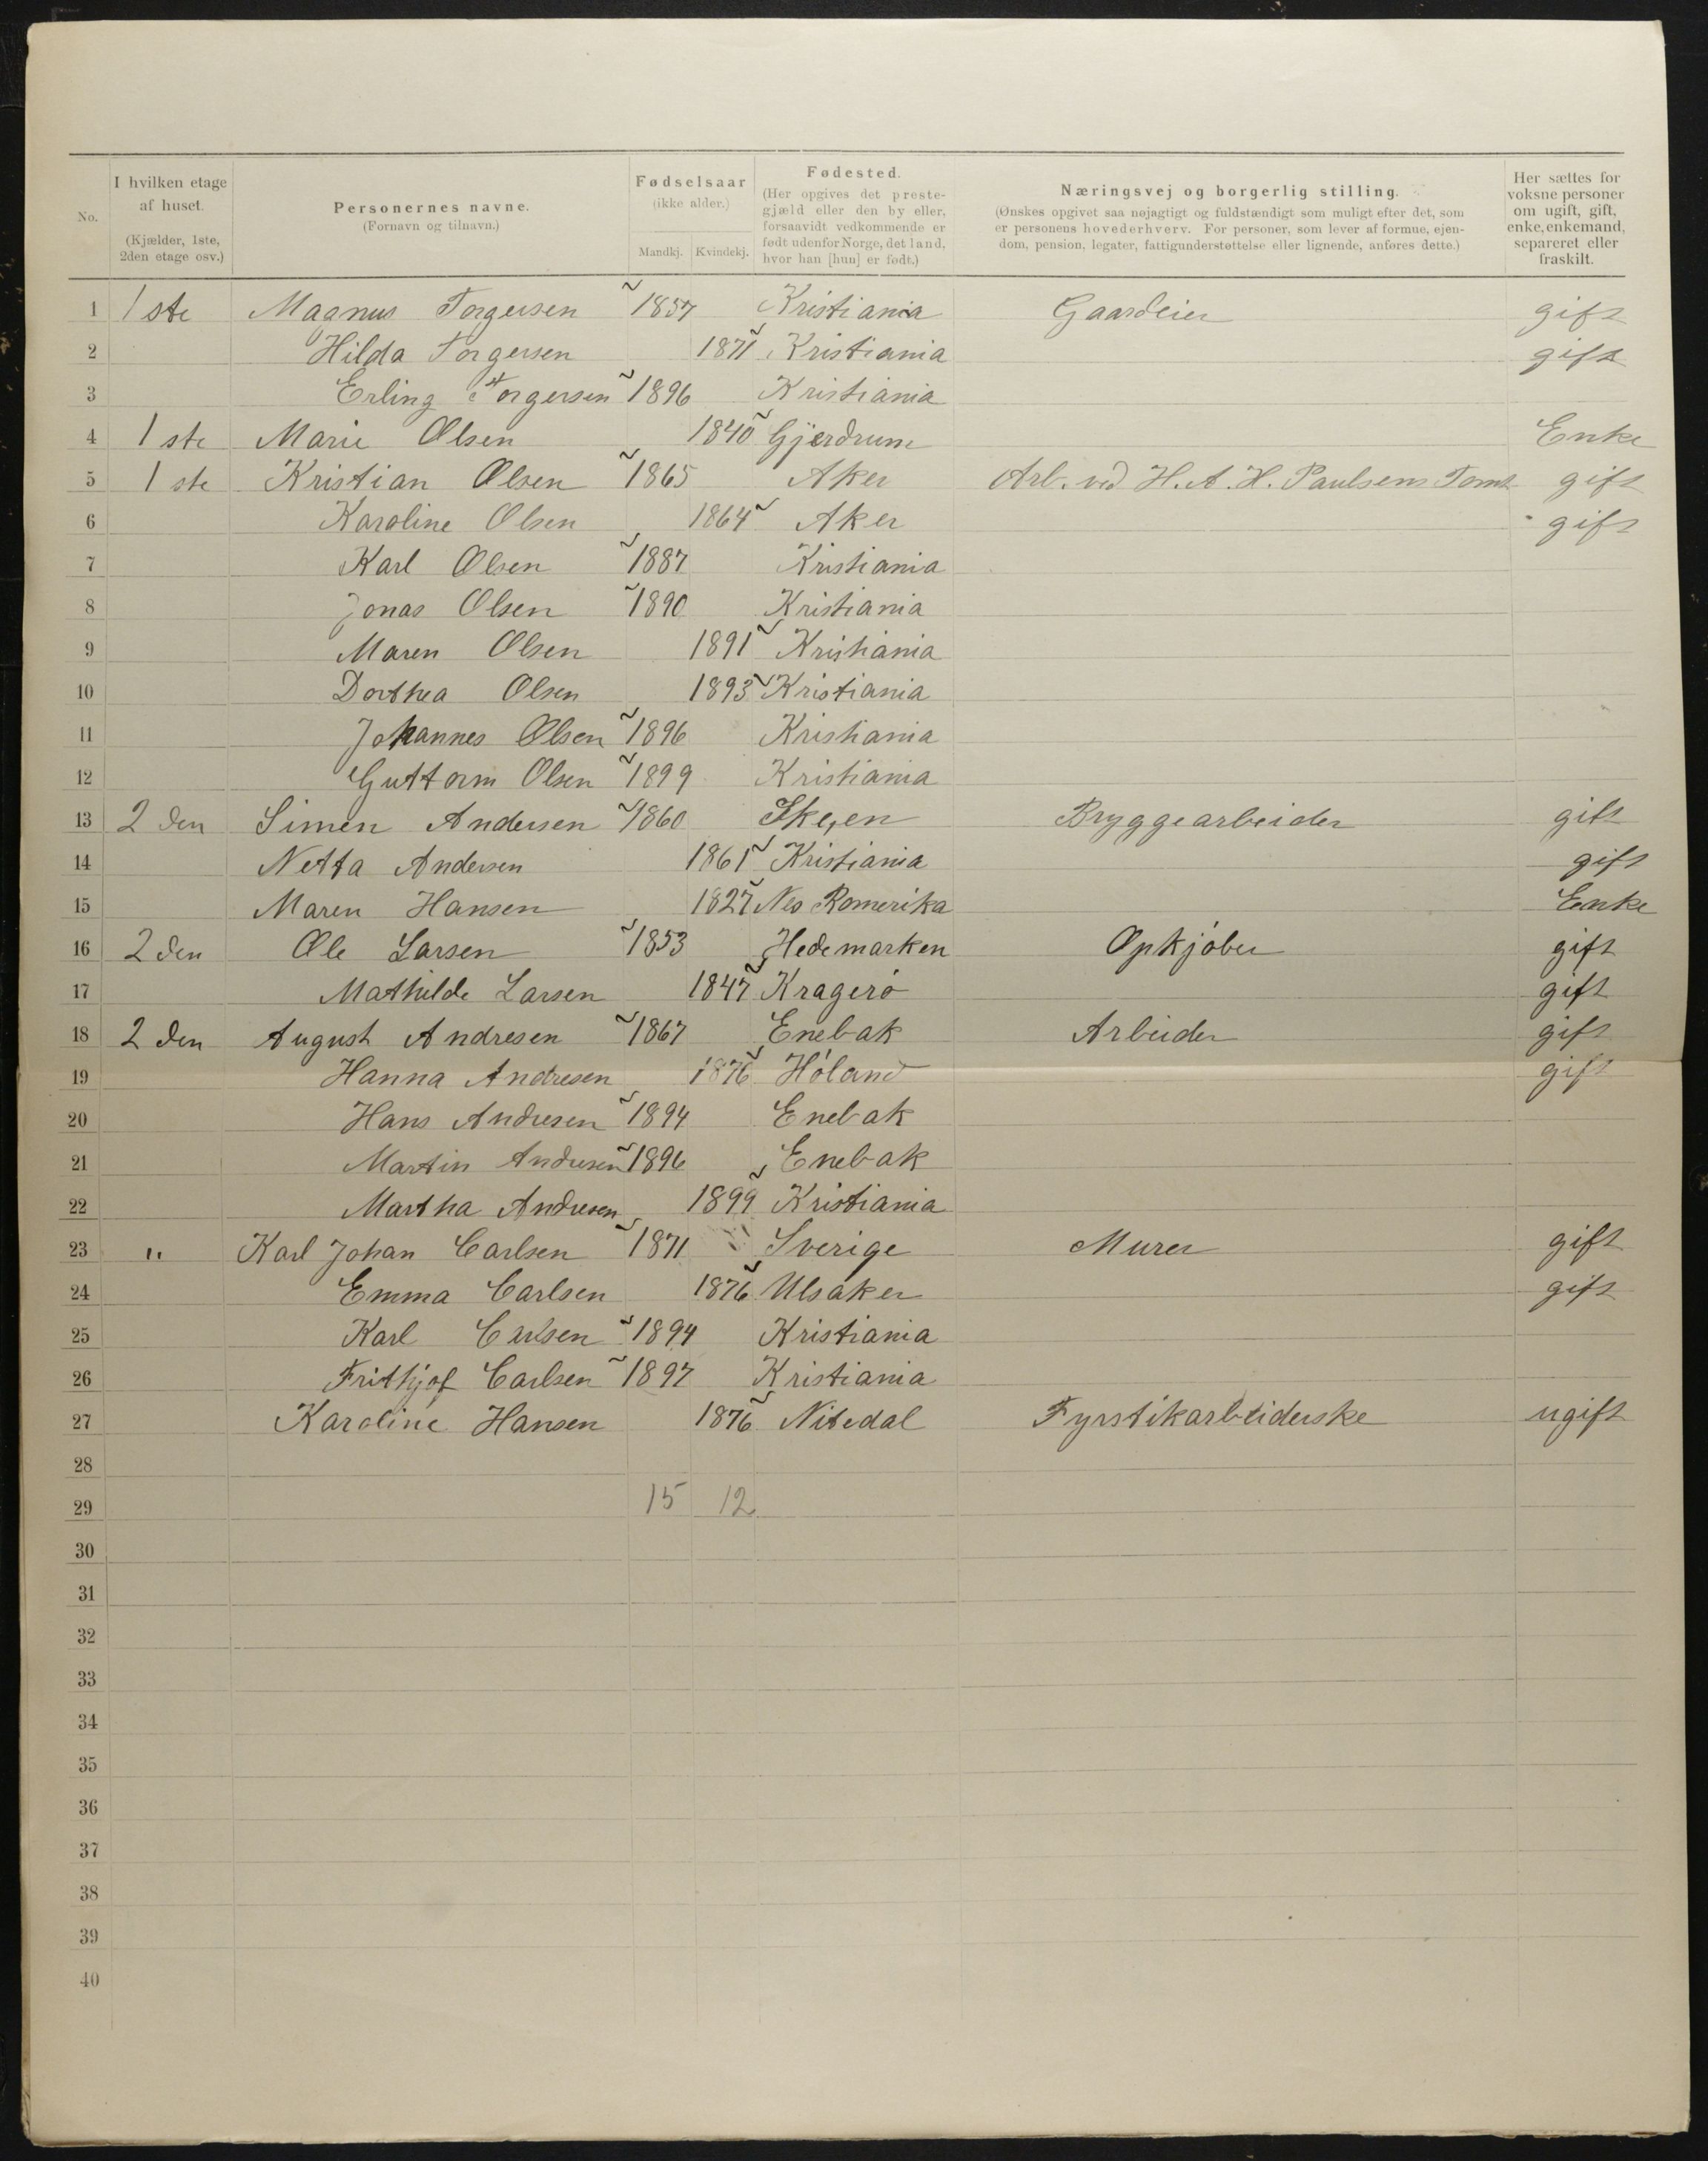 No.
I hvilken etage af huset. (Kjælder, 1ste, 2den etage osv.)
Personernes navne. (Fornavn og tilnavn.)
Fødselsaar (ikke alder.)
Mandkj. Kvindekj.
Fødested. (Her opgives det prestegjæld eller den by eller, forsaavidt vedkommende er født udenfor Norge, det land, hvor han [hun] er født.)
Næringsvej og borgerlig stilling. (Ønskes opgivet saa nøjagtigt og fuldstændigt som muligt efter det, som er personens hovederhverv. For personer, som lever af formue, ejendom, pension, legater, fattigunderstøttelse eller lignende, anføres dette.)
Her sættes for voksne personer om ugift, gift, enke, enkemand, separeret eller fraskilt.
1 1 ste Magnus Torgersen 1857 Kristiania Gaardeier gift
2 Hilda Torgersen 1871 Kristiania gift
3 Erling Torgersen 1896 Kristiania
4 1 ste Marie Olsen 1840 Gjerdrum Enke
5 1 ste Kristian Olsen 1865 Aker Arb. ved H. A. H. Paulsens Tomt gift
6 Karoline Olsen 1864 Aker gift
7 Karl Olsen 1887 Kristiania
8 Jonas Olsen 1890 Kristiania
9 Maren Olsen 1891 Kristiania
10 Dorthea Olsen 1893 Kristiania
11 Johannes Olsen 1896 Kristiania
12 Guttorm Olsen 1899 Kristiania
13 2 den Simen Andersen 1860 Skeen Bryggearbeider gift
14 Netta Andersen 1861 Kristiania gift
15 Maren Hansen 1827 Nes Romerika Enke
16 2 den Ole Larsen 1853 Hedemarken Opkjøber gift
17 Mathilde Larsen 1847 Kragerø gift
18 2 den August Andresen 1867 Enebak Arbeider gift
19 Hanna Andresen 1876 Høland gift
20 Hans Andresen 1894 Enebak
21 Martin Andresen 1896 Enebak
22 Martha Andresen 1899 Kristiania
23 " Karl Johan Carlsen 1871 Sverige Murer gift
24 Emma Carlsen 1876 Ulsaker gift
25 Karl Carlsen 1894 Kristiania
26 Frithjof Carlsen 1897 Kristiania
27 Karoline Hansen 1876 Nitedal Fyrstikarbeiderske ugift
28
29 15 12
30
31
32
33
34
35
36
37
38
39
40